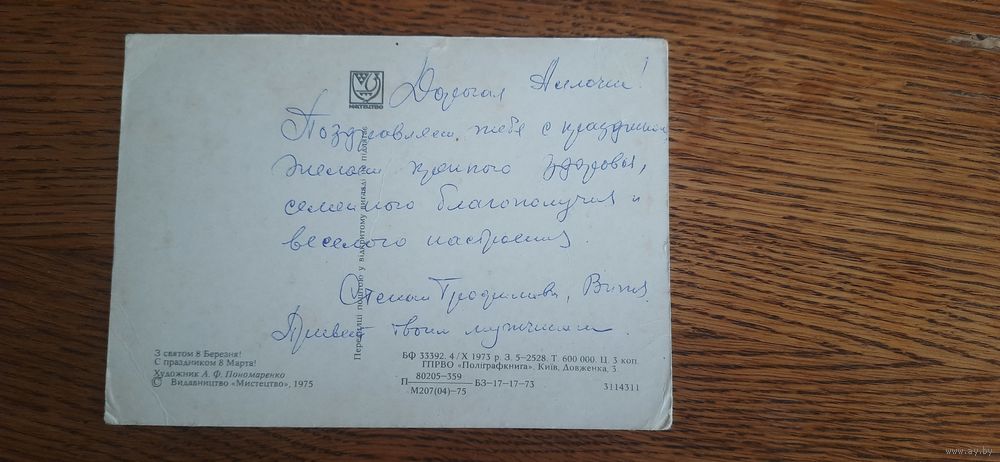 МИСТЕЦТВО
Дорогая !
Поздравляем тебя с праздником
Желаем крепкого здоровья,
семейного благополучия и
веселого настроения.
Привет твоим мужчинам.
Пересилці поштою у відкритому вигляді не підлягає
З святом 8 Березня!
С праздником 8 Марта!
Художник А. Ф. Пономаренко
© Видавництво «Мистецтво», 1975
БФ 33392. 4/X 1973 р. З. 5—2528. Т. 600 000. Ц. 3 коп.
ГПРВО «Поліграфкнига». Київ, Довженка, 3.
П 80205—359 БЗ—17—17—73
М207(04)—75
3114311
www.ay.by